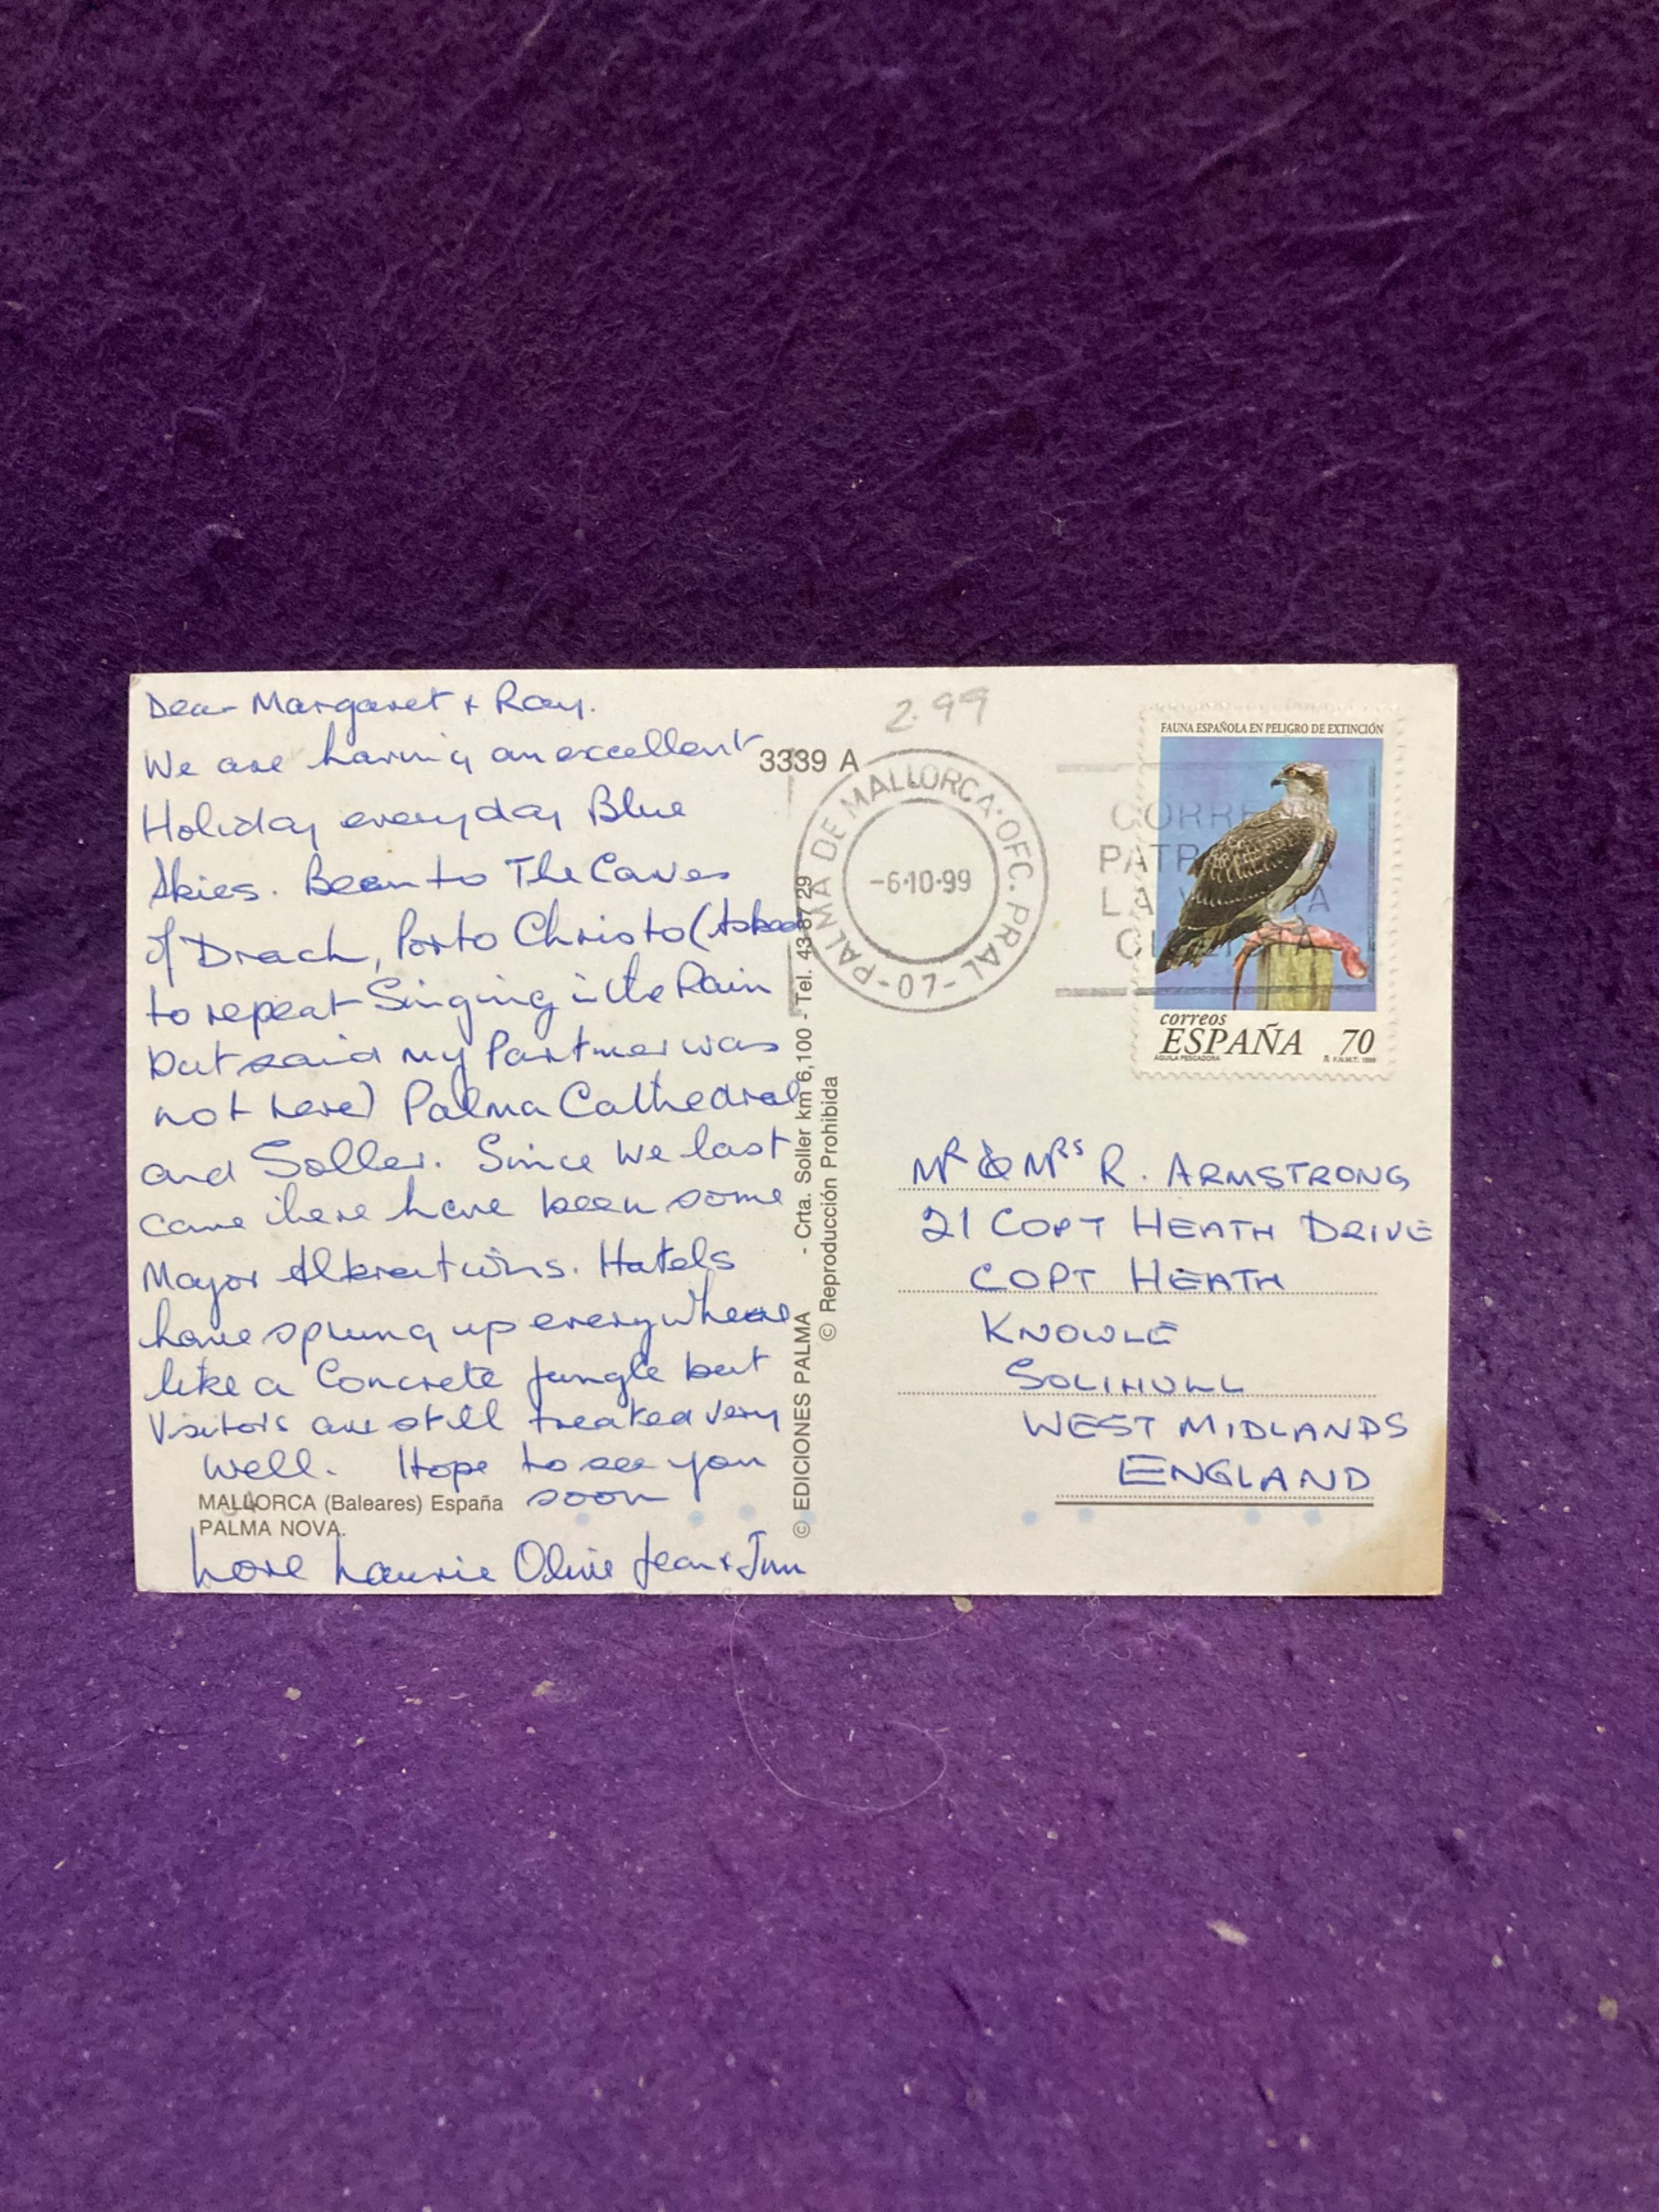 Dear Margaret + Ray.
We are having an excellent
Holiday everyday Blue
Skies. Been to The Caves
of Drach, Porto Christo (Asked
to repeat Singing in the Rain
but said my Partner was
not here) Palma Cathedral
and Soller. Since we last
came there have been some
Major Alterations. Hotels
have sprung up everywhere
like a Concrete jungle but
Visitors are still treated very
well. Hope to see you
soon
MALLORCA (Baleares) España
PALMA NOVA.
Love Laurie Olive Jean + Jim
3339 A
© EDICIONES PALMA - Crta. Soller km 6,100 - Tel. 43 87 29
© Reproducción Prohibida
2.99
PALMA DE MALLORCA·OFC. PRAL -07-
-6·10·99
CORRE
PATR
LA
FAUNA ESPAÑOLA EN PELIGRO DE EXTINCIÓN
correos
ESPAÑA 70
AGUILA PESCADORA F.N.M.T. 1999
Mr & Mrs R. ARMSTRONG
21 COPT HEATH DRIVE
COPT HEATH
KNOWLE
SOLIHULL
WEST MIDLANDS
ENGLAND